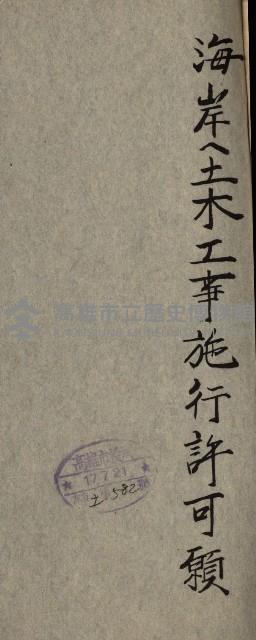 海岸へ土木工事施行許可願
高雄市立歷史博物館
17.7.21
土 582